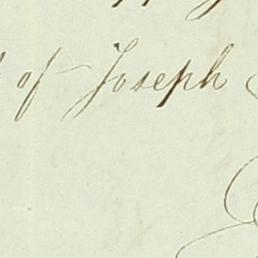 of Joseph